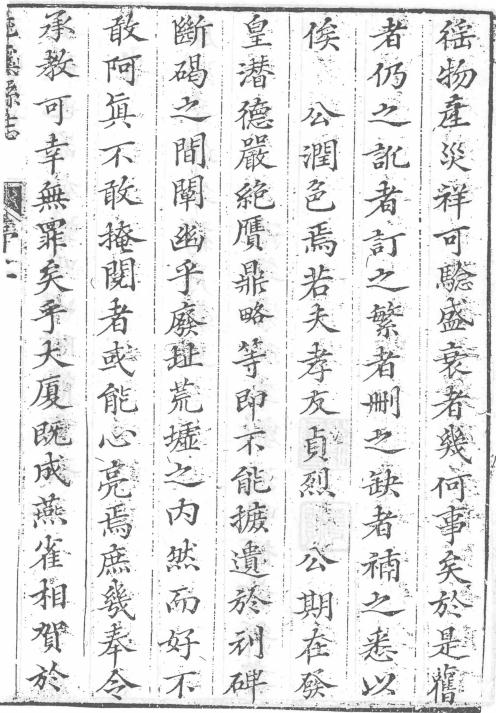 徭物產災祥可騐盛衰者幾何事矣於是舊
者仍之訛者訂之繁者刪之缺者補之悉以
俟　公潤色焉若夫孝友貞烈　公期在發
皇潛德嚴絕贋鼎略等即不能摭遺於剩碑
斷碣之間闡幽乎廢址荒墟之内然而好不
敢阿眞不敢掩閱者或能心亮焉庶幾奉令
承教可幸無罪矣乎大厦既成燕雀相賀於
縣志
序